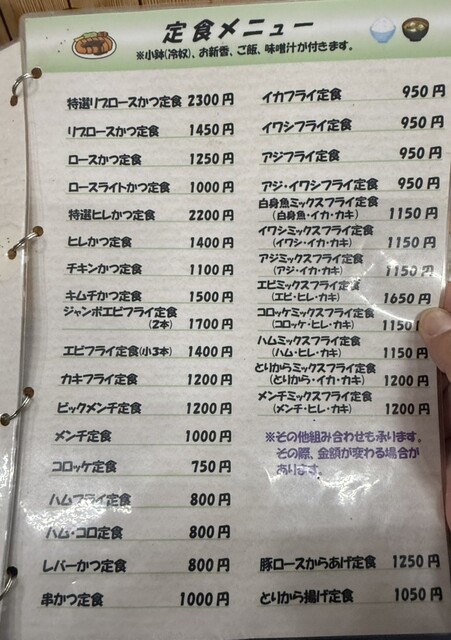 定食メニュー
※小鉢(冷奴)、お新香、ご飯、味噌汁が付きます。
特選リブロースかつ定食 2300円
リブロースかつ定食 1450円
ロースかつ定食 1250円
ロースライトかつ定食 1000円
特選ヒレかつ定食 2200円
ヒレかつ定食 1400円
チキンかつ定食 1100円
キムチかつ定食 1500円
ジャンボエビフライ定食
(2本) 1700円
エビフライ定食(小3本) 1400円
カキフライ定食 1200円
ビックメンチ定食 1200円
メンチ定食 1000円
コロッケ定食 750円
ハムフライ定食 800円
ハム・コロ定食 800円
レバーかつ定食 800円
串かつ定食 1000円
イカフライ定食 950円
イワシフライ定食 950円
アジフライ定食 950円
アジ・イワシフライ定食 950円
白身魚ミックスフライ定食
(白身魚・イカ・カキ) 1150円
イワシミックスフライ定食
(イワシ・イカ・カキ) 1150円
アジミックスフライ定食
(アジ・イカ・カキ) 1150円
エビミックスフライ定食
(エビ・ヒレ・カキ) 1650円
コロッケミックスフライ定食
(コロッケ・ヒレ・カキ) 1150円
ハムミックスフライ定食
(ハム・ヒレ・カキ) 1150円
とりからミックスフライ定食
(とりから・イカ・カキ) 1200円
メンチミックスフライ定食
(メンチ・ヒレ・カキ) 1200円
※その他組み合わせも承ります。
その際、金額が変わる場合が
あります。
豚ロースからあげ定食 1250円
とりから揚げ定食 1050円